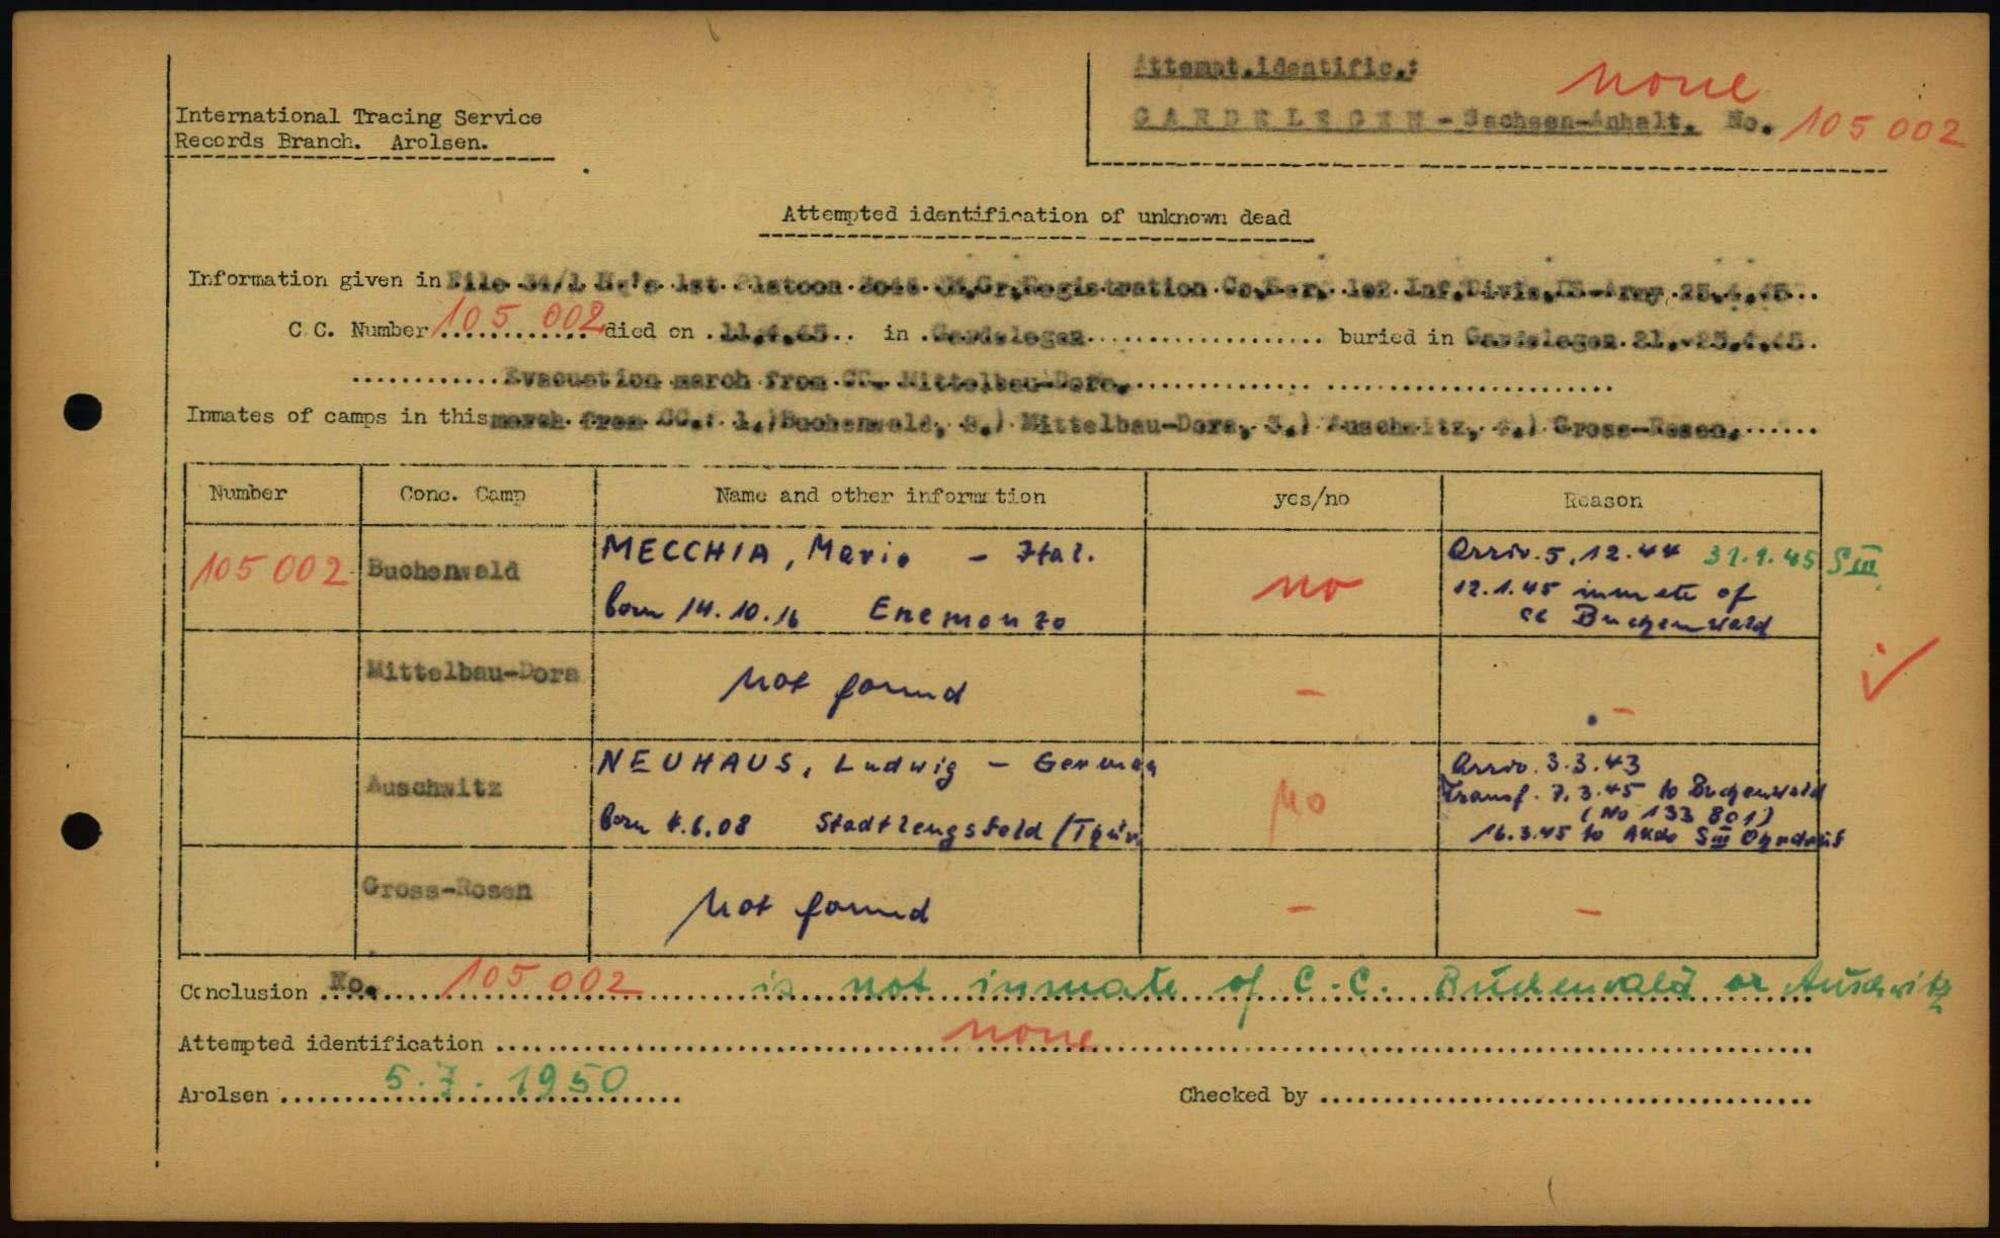 Attempt.identific.: none
International Tracing Service
GARDELEGEN - Sachsen-Anhalt. No. 105 002
Records Branch. Arolsen.
Attempted identification of unknown dead
Information given in File 34/1 1st. Platoon 3046 QM.Gr.Registration Co.Ser. 102 Inf.Divis.US-Army 25.4.45..
C C. Number 105 002 died on .11.4.45.. in .Gardelegen. buried in Gardelegen 21.-25.4.45.
Evacuation march from CC. Mittelbau-Dora.
Inmates of camps in this march from CC.: 1.)Buchenwald, 2.) Mittelbau-Dora, 3.) Auschwitz, 4.) Gross-Rosen.
Number Conc. Camp Name and other information yes/no Reason
105 002 Buchenwald MECCHIA, Mario - Ital. no Arriv. 5.12.44 31.1.45 SIII
born 14.10.16 Enemonzo 12.1.45 inmate of
cc Buchenwald
Mittelbau-Dora not found - -
Auschwitz NEUHAUS, Ludwig - German no Arriv. 3.3.43
born 4.6.08 Stadtlengsfeld /Thür. Transf. 7.3.45 to Buchenwald
(No 133 801)
16.3.45 to AKdo SIII Ohrdruf
Gross-Rosen not found - -
Conclusion No. 105 002 is not inmate of C.C. Buchenwald or Auschwitz
Attempted identification none
Arolsen 5.7.1950 Checked by